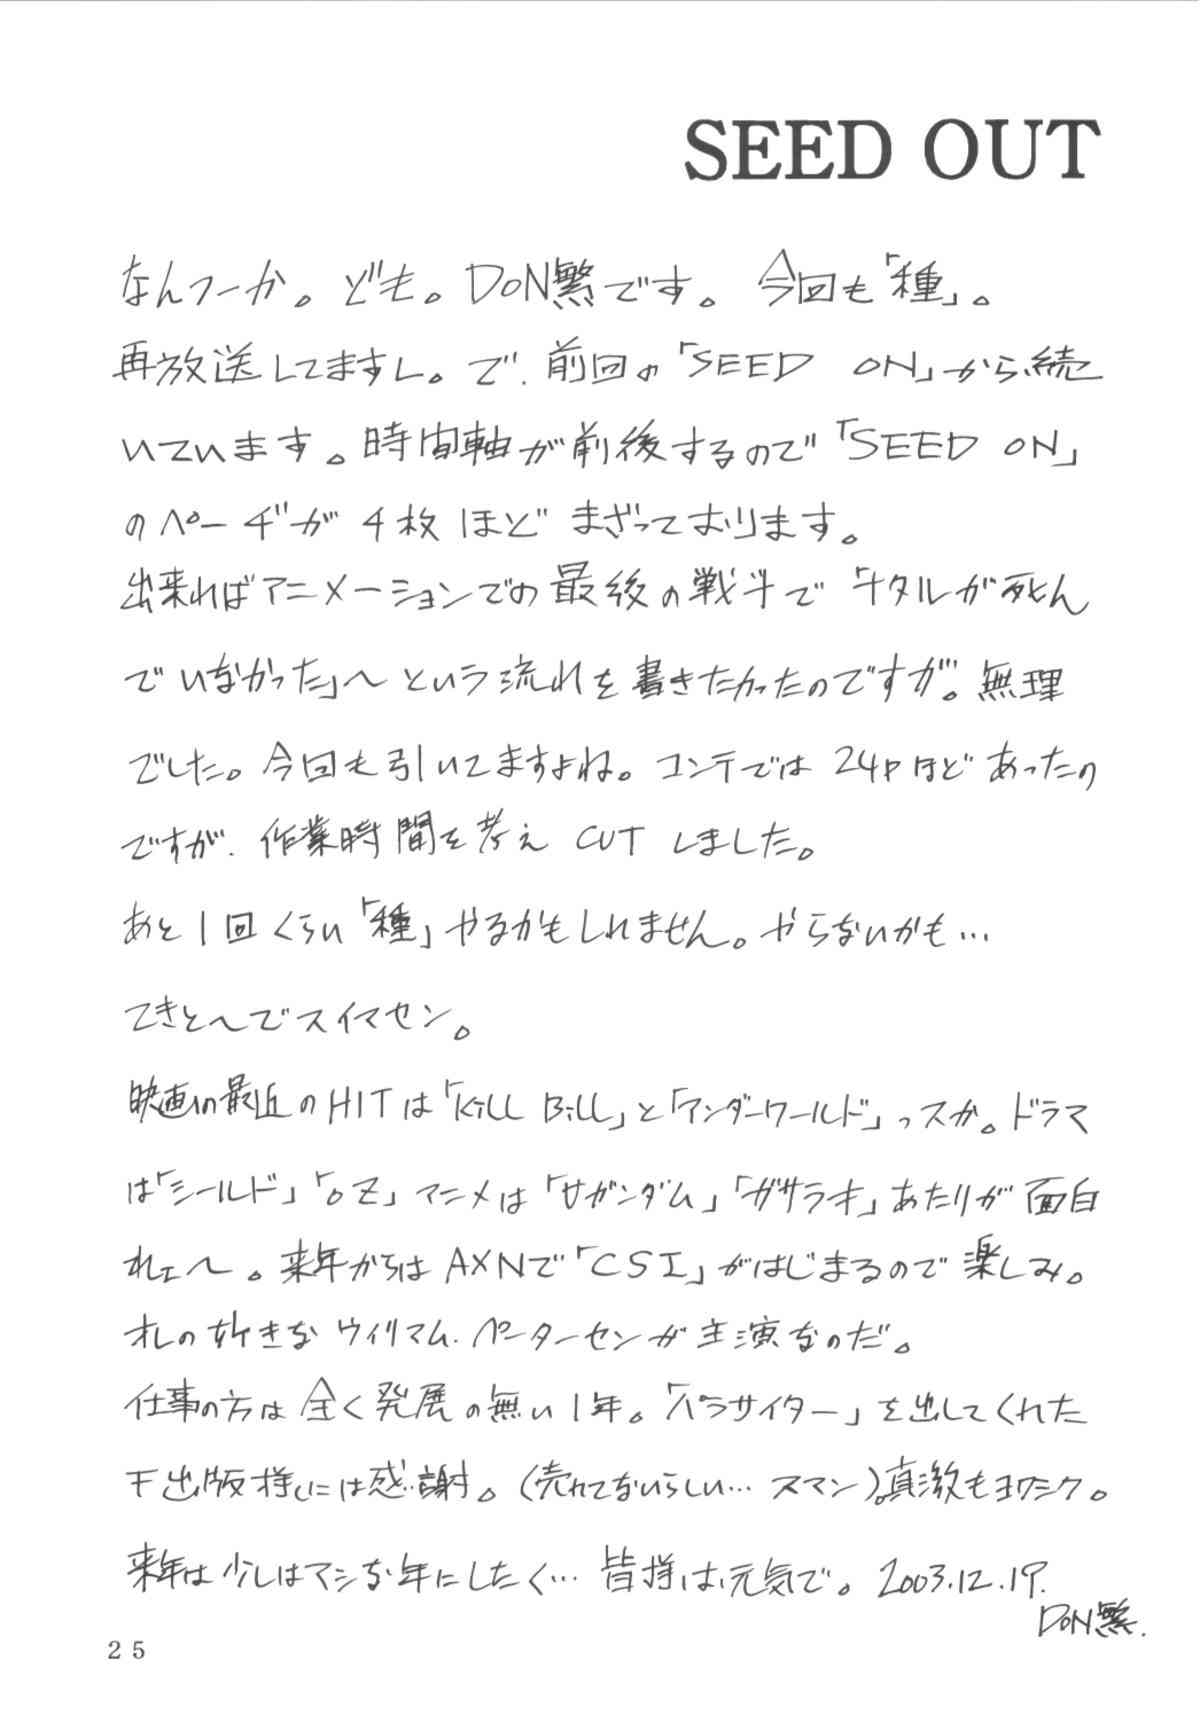 SEED OUT
なんつーか。ども。DON繁です。 今回も「種」。
再放送してますし。で、前回の「SEED ON」から続
いています。時間軸が前後するので「SEED ON」
のページが4枚ほどまざっております。
出来ればアニメーションでの最後の戦斗で「キタルが死ん
でいなかった」〜という流れを書きたかったのですが。無理
でした。今回も引いてますよね。コンテでは24Pほどあったの
ですが、作業時間を考えCUTしました。
あと1回くらい「種」やるかもしれません。やらないかも…
てきと〜でスイマセン。
映画の最近のHITは「Kill Bill」と「アンダーワールド」っスか。ドラマ
は「シールド」「OZ」アニメは「サガンダム」「ガサラキ」あたりが面白
れェ〜。来年からはAXNで「CSI」がはじまるので楽しみ。
オレの好きなウイリアム・ペーターセンが主演なのだ。
仕事の方は全く発展の無い1年。「パラサイター」を出してくれた
出版様には感謝。(売れてないらしい…スマン)。真激もヨロシク。
来年は少しはマシな年にしたく…皆様は元気で。2003.12.19.
DON繁.
25